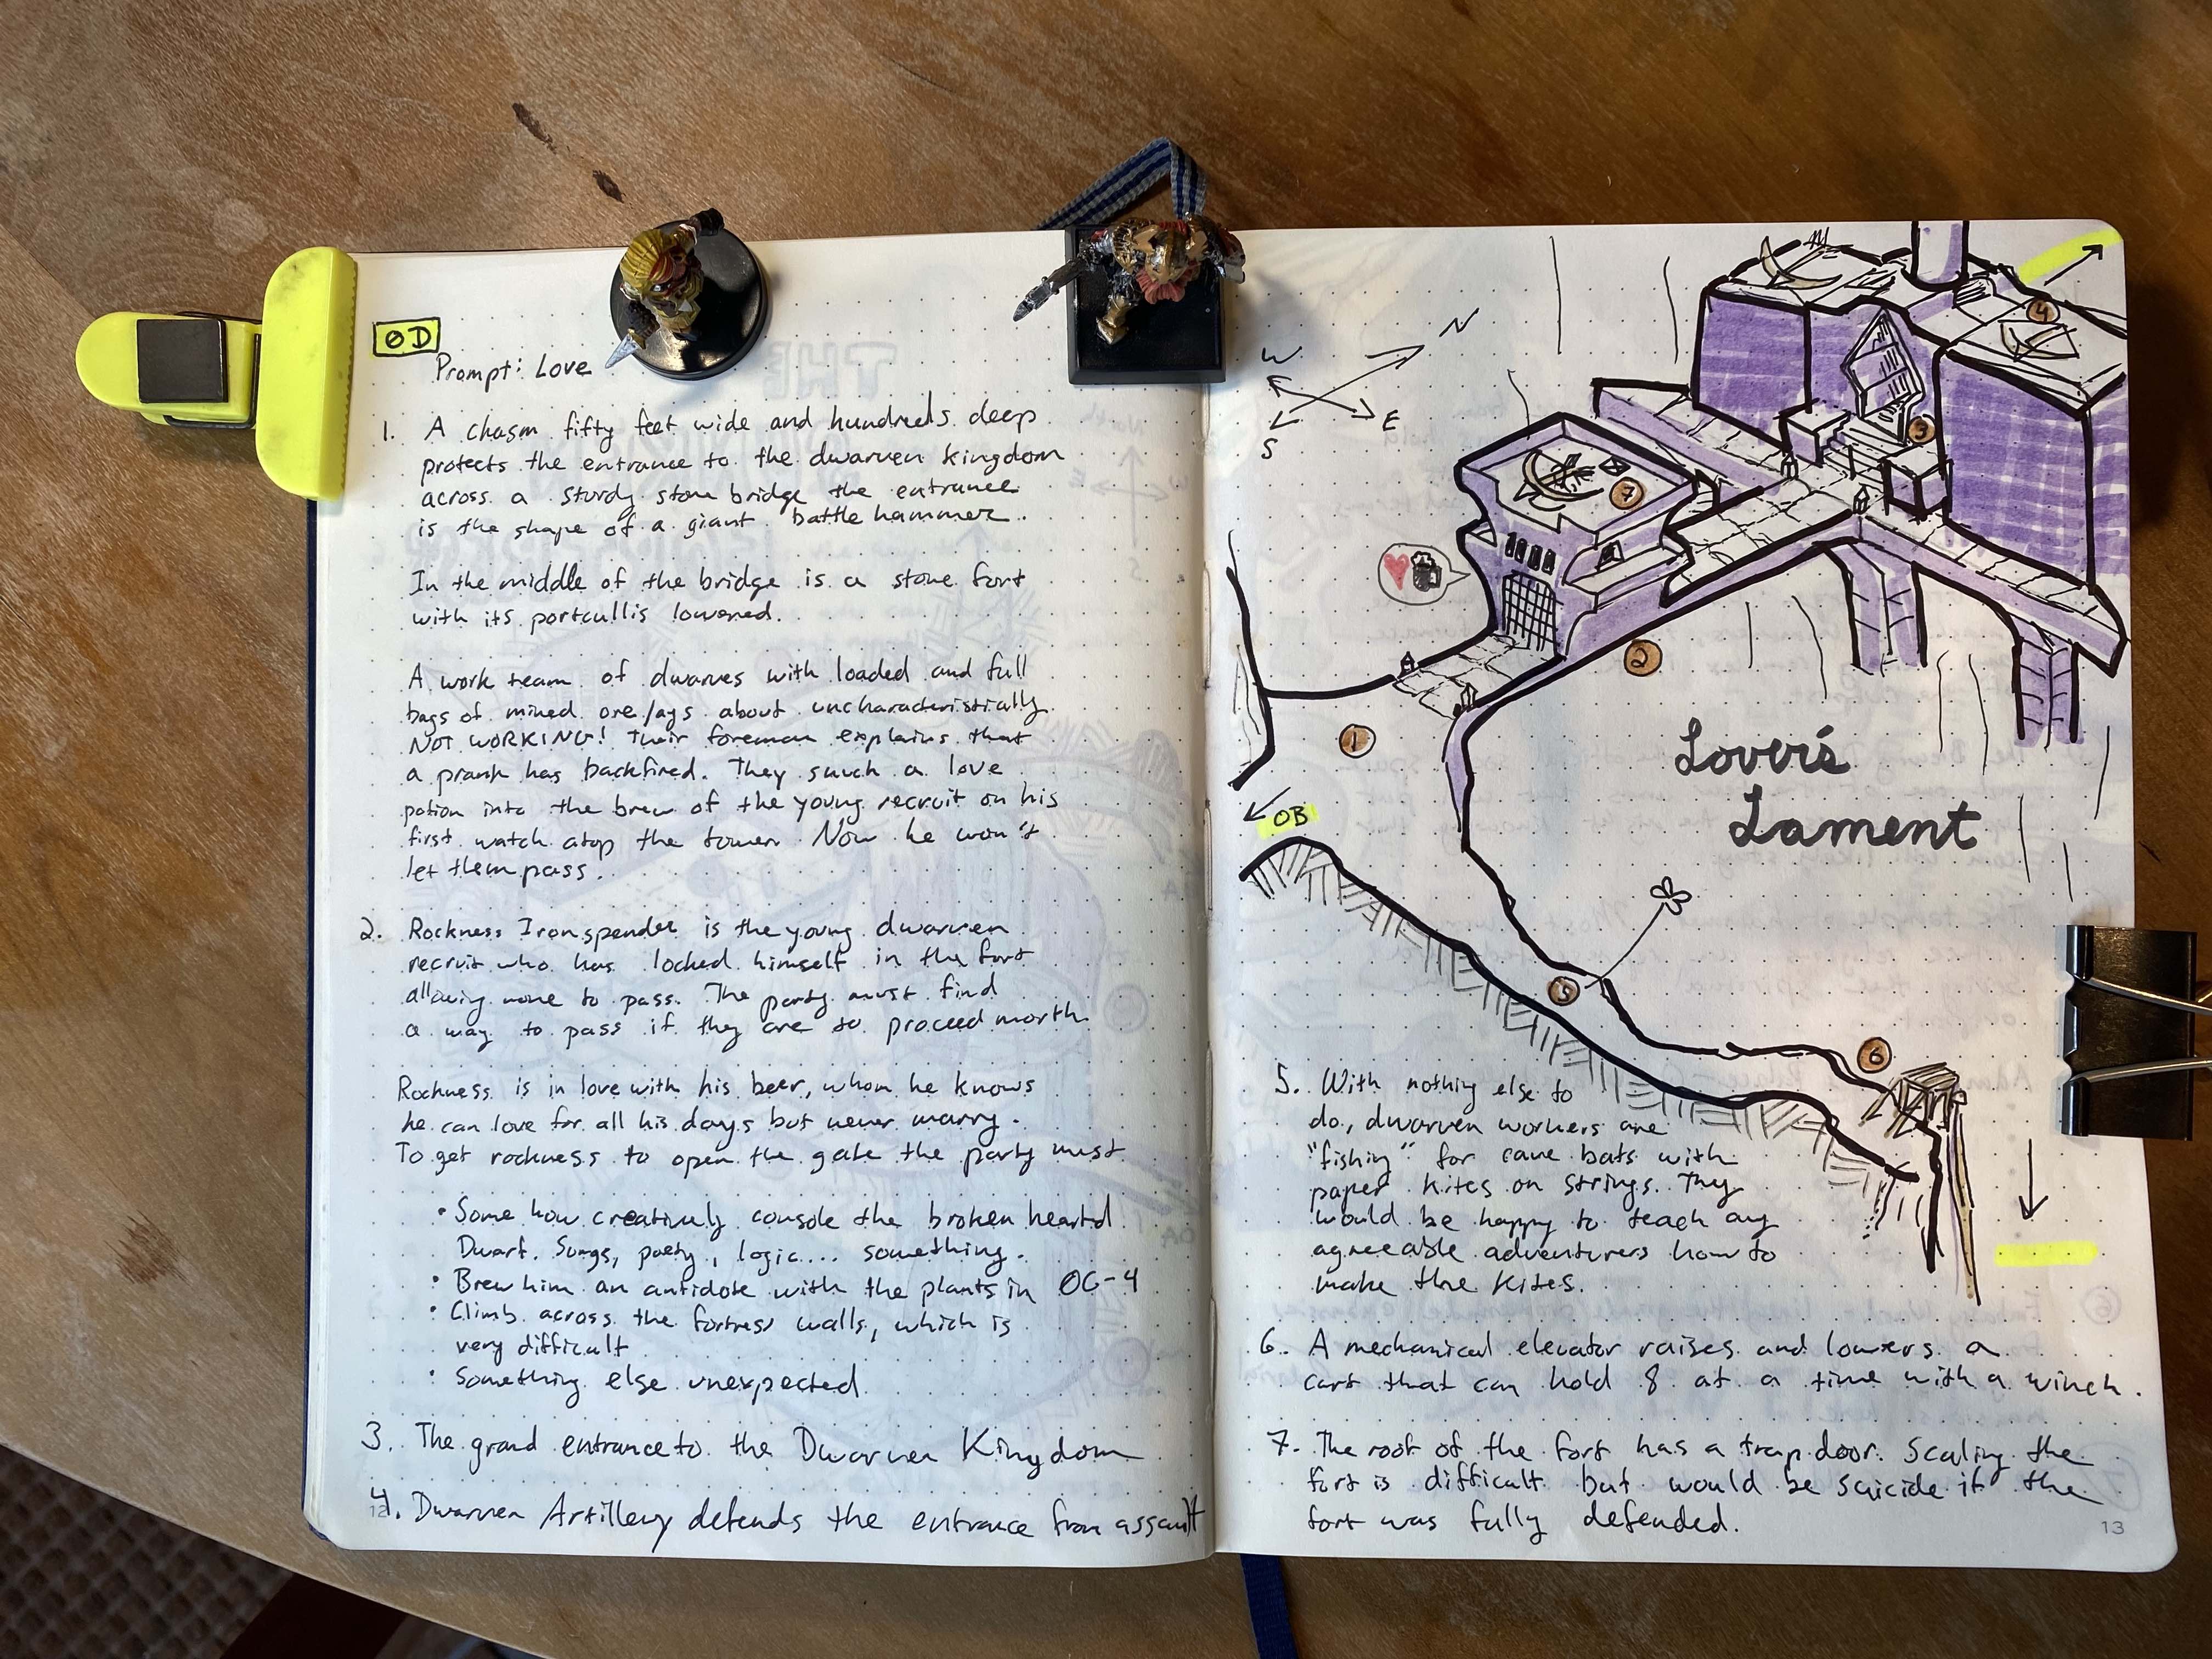 OD
Prompt: Love
1. A chasm fifty feet wide and hundreds deep
protects the entrance to the dwarven kingdom
across a sturdy stone bridge the entrance
is the shape of a giant battle hammer.
In the middle of the bridge is a stone fort
with its portcullis lowered.
A work team of dwarves with loaded and full
bags of mined ore lays about uncharacteristically
NOT WORKING! Their foreman explains that
a prank has backfired. They snuck a love
potion into the brew of the young recruit on his
first watch atop the tower. Now he won't
let them pass.
2. Rockness Ironspender is the young dwarven
recruit who has locked himself in the fort
allowing none to pass. The party must find
a way to pass if they are to proceed north.
Rockness is in love with his beer, whom he knows
he can love for all his days but never marry.
To get rockness to open the gate the party must
• Some how creatively console the broken heartd
Dwarf. Songs, poetry, logic.... something.
• Brew him an antidote with the plants in OC-4
• Climb across the fortress walls, which is
very difficult
• Something else unexpected.
3. The grand entrance to the Dwarven Kingdom
4. Dwarven Artillery defends the entrance from assault
12
W
N
S
E
4
3
7
2
1
Lover's
Lament
OB
5
6
5. With nothing else to
do, dwarven workers are
"fishing" for cave bats with
paper kites on strings. They
would be happy to teach any
agreeable adventurers how to
make the kites.
6. A mechanical elevator raises and lowers a
cart that can hold 8 at a time with a winch.
7. The roof of the fort has a trap door. Scaling the
fort is difficult but would be suicide if the
fort was fully defended.
13